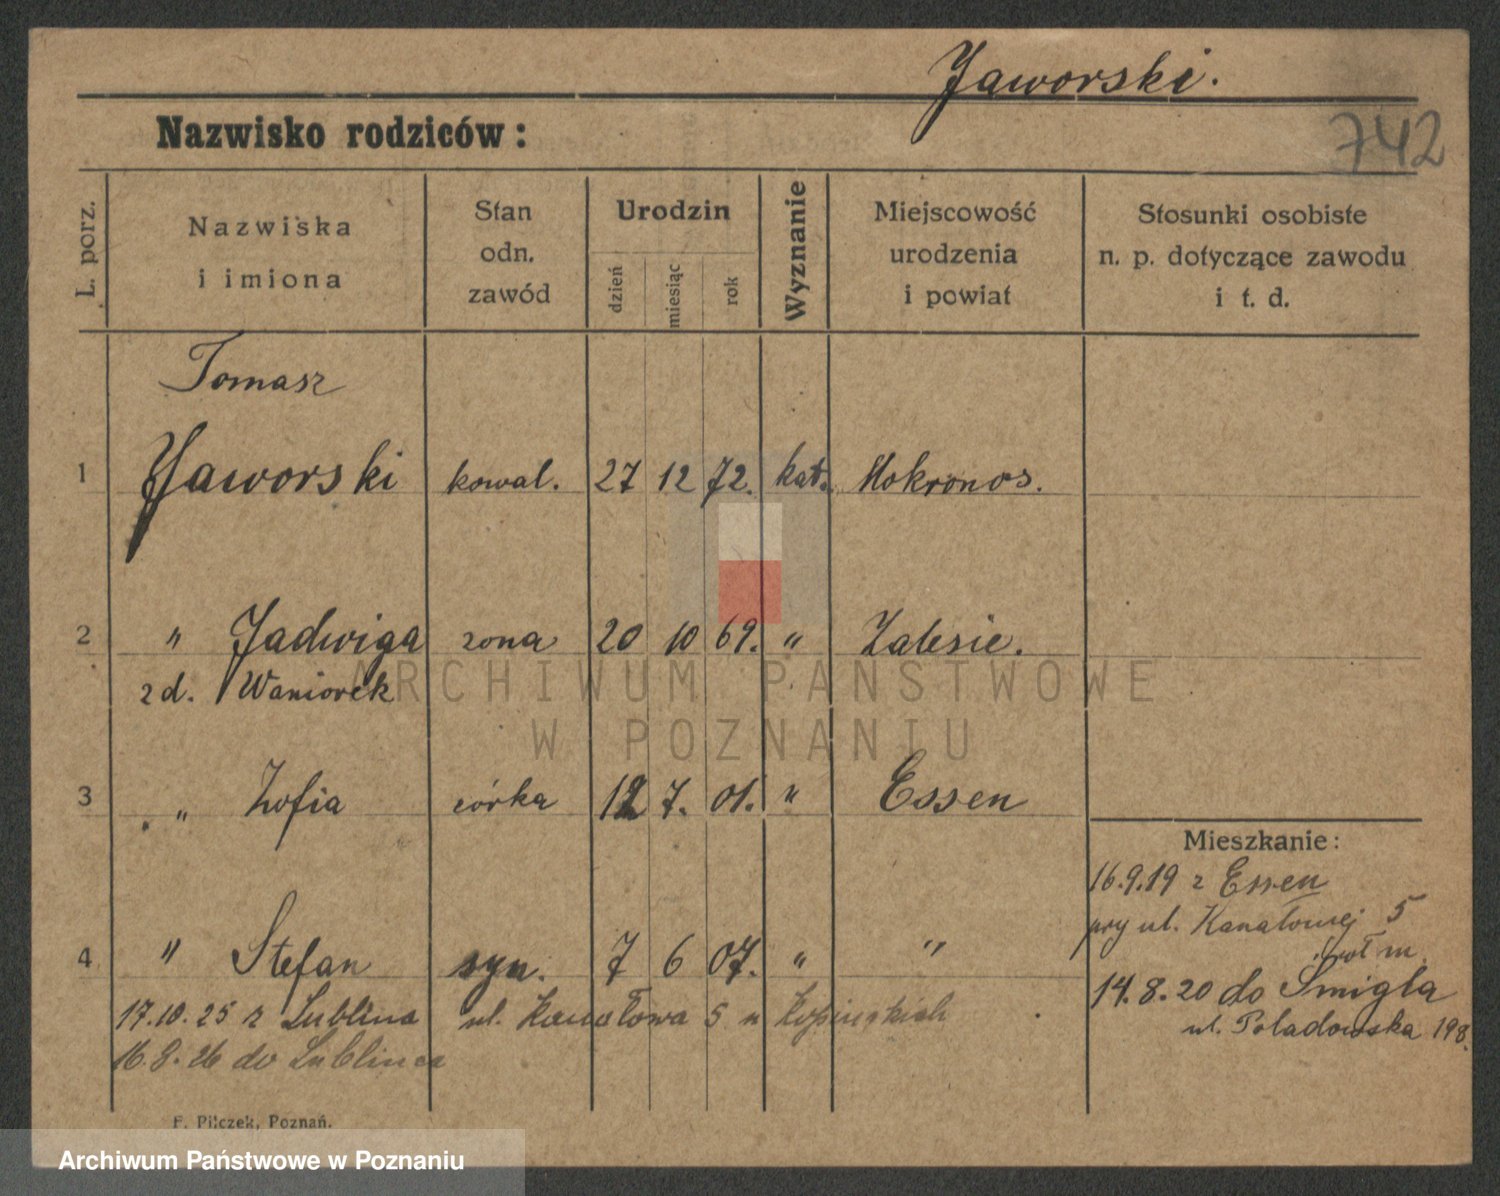 Jaworski.
Nazwisko rodziców:
742
L. porz.
Nazwiska
i imiona
Stan
odn.
zawód
Urodzin
dzień
miesiąc
rok
Wyznanie
Miejscowość
urodzenia
i powiat
Stosunki osobiste
n. p. dotyczące zawodu
i t. d.
Tomasz
1 Jaworski kowal. 27 12 72. kat. Mokronos.
2 " Jadwiga zona 20 10 69. " Zalesie.
zd. Waniorek
3 " Zofia córka 12 7. 01. " Essen
Mieszkanie:
16.9.19 z Essen
przy ul. Kanałowej 5
4 " Stefan syn. 7 6 07. " "
14.8.20 do Śmigla
17.10.25 z Lublina ul. Kanałowa 5
ul. Poladowska 198.
16.8.26 do Lublinca
F. Pilczek, Poznań.
ARCHIWUM PAŃSTWOWE
W POZNANIU
Archiwum Państwowe w Poznaniu